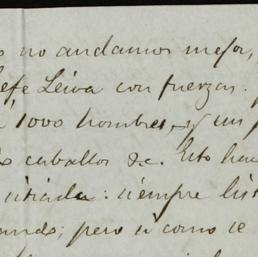 no andamos mejor,
efe Leiva con fuerzas.
1000 hombres, y un
caballos &c. Esto hace
sitiada: siempre list
ando; pero si como se